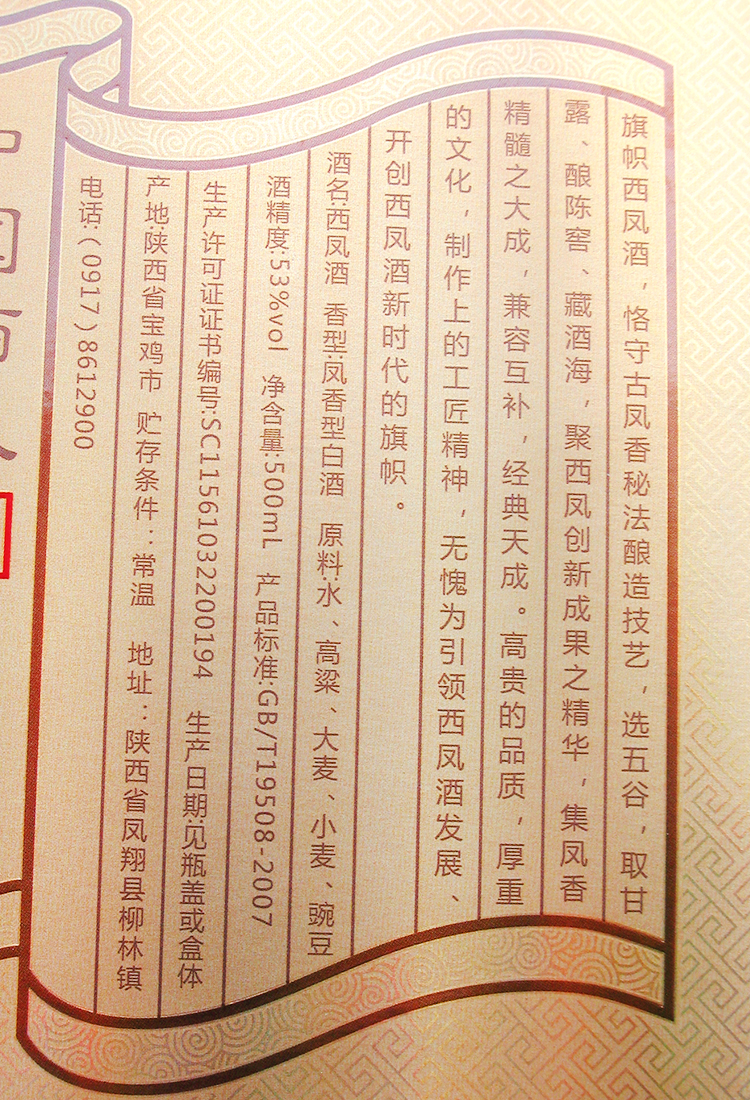 旗帜西凤酒，恪守古凤香秘法酿造技艺，选五谷，取甘
露、酿陈窖、藏酒海，聚西凤创新成果之精华，集凤香
精髓之大成，兼容互补，经典天成。高贵的品质，厚重
的文化，制作上的工匠精神，无愧为引领西凤酒发展、
开创西凤酒新时代的旗帜。
酒名:西凤酒 香型:凤香型白酒 原料:水、高粱、大麦、小麦、豌豆
酒精度:53%vol 净含量:500mL 产品标准:GB/T19508-2007
生产许可证证书编号:SC11561032200194 生产日期:见瓶盖或盒体
产地:陕西省宝鸡市 贮存条件：常温 地址：陕西省凤翔县柳林镇
电话:(0917)8612900